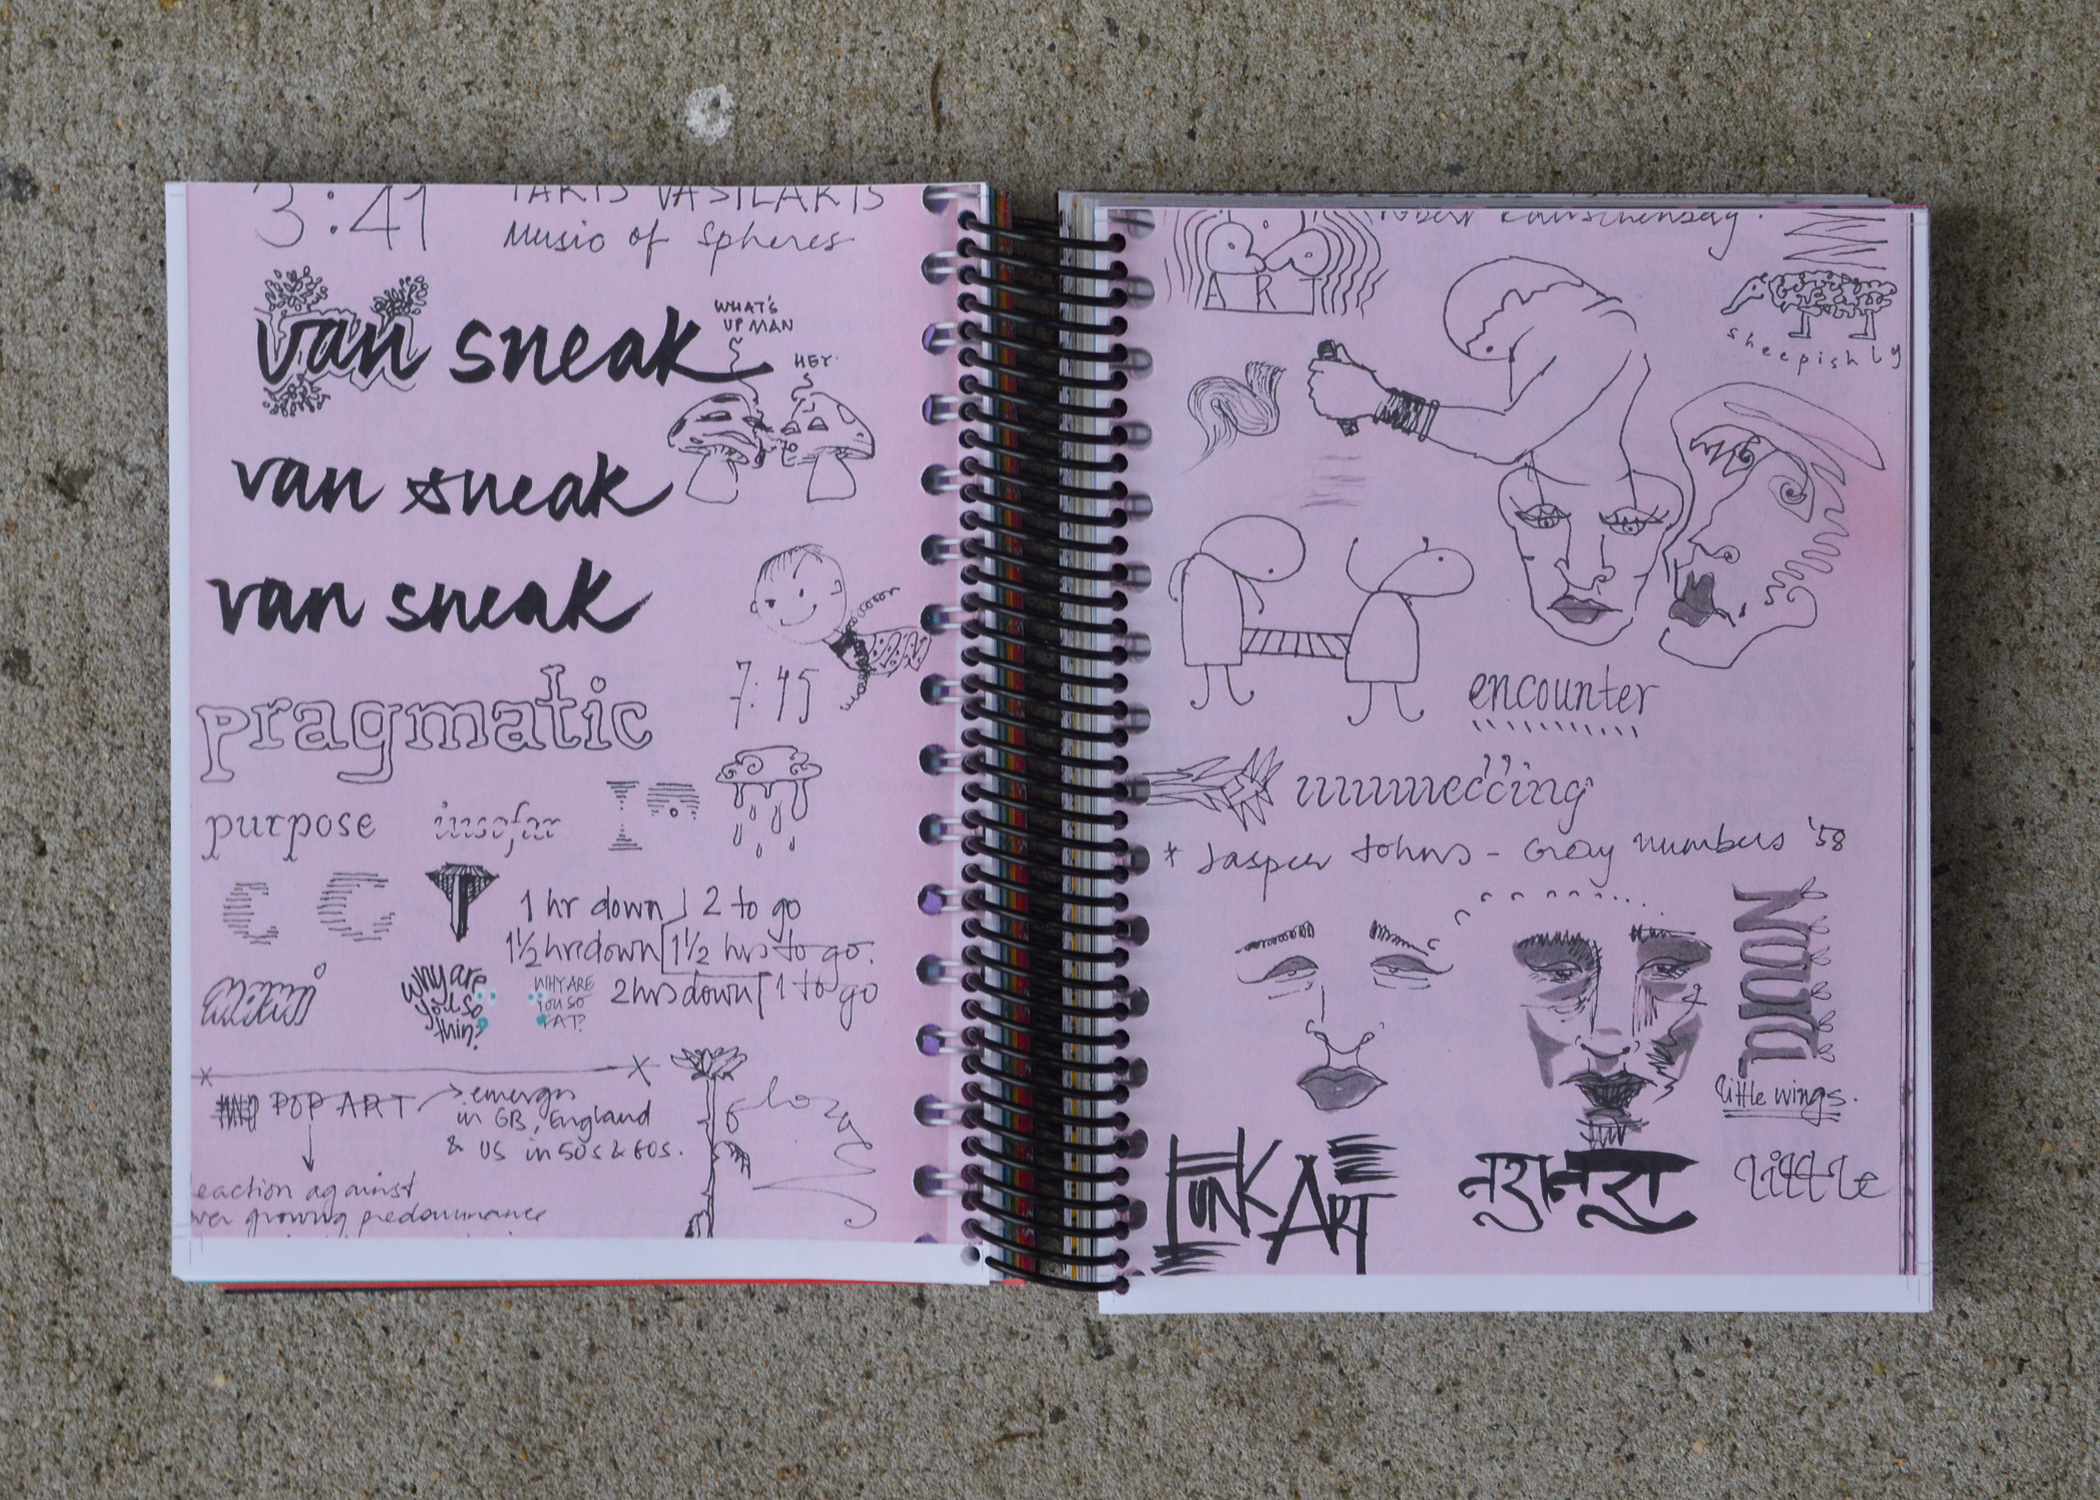 3:41
TAKIS VASILAKIS
Music of Spheres
van sneak
WHAT'S
UP MAN
HEY.
van sneak
van sneak
7:45
pragmatic
purpose
insofar
C C
T
1 hr down 2 to go
1½ hr down 1½ hrs to go.
2 hrs down 1 to go
mami
why are
you so
thin?
WHY ARE
YOU SO
FAT?
POP ART
emerges
in GB, England
& US in 50s & 60s.
eaction against
ver growing predominance
ART
sheepishly
encounter
* Jasper Johns - Gray numbers '58
little wings.
FUNK ART
little